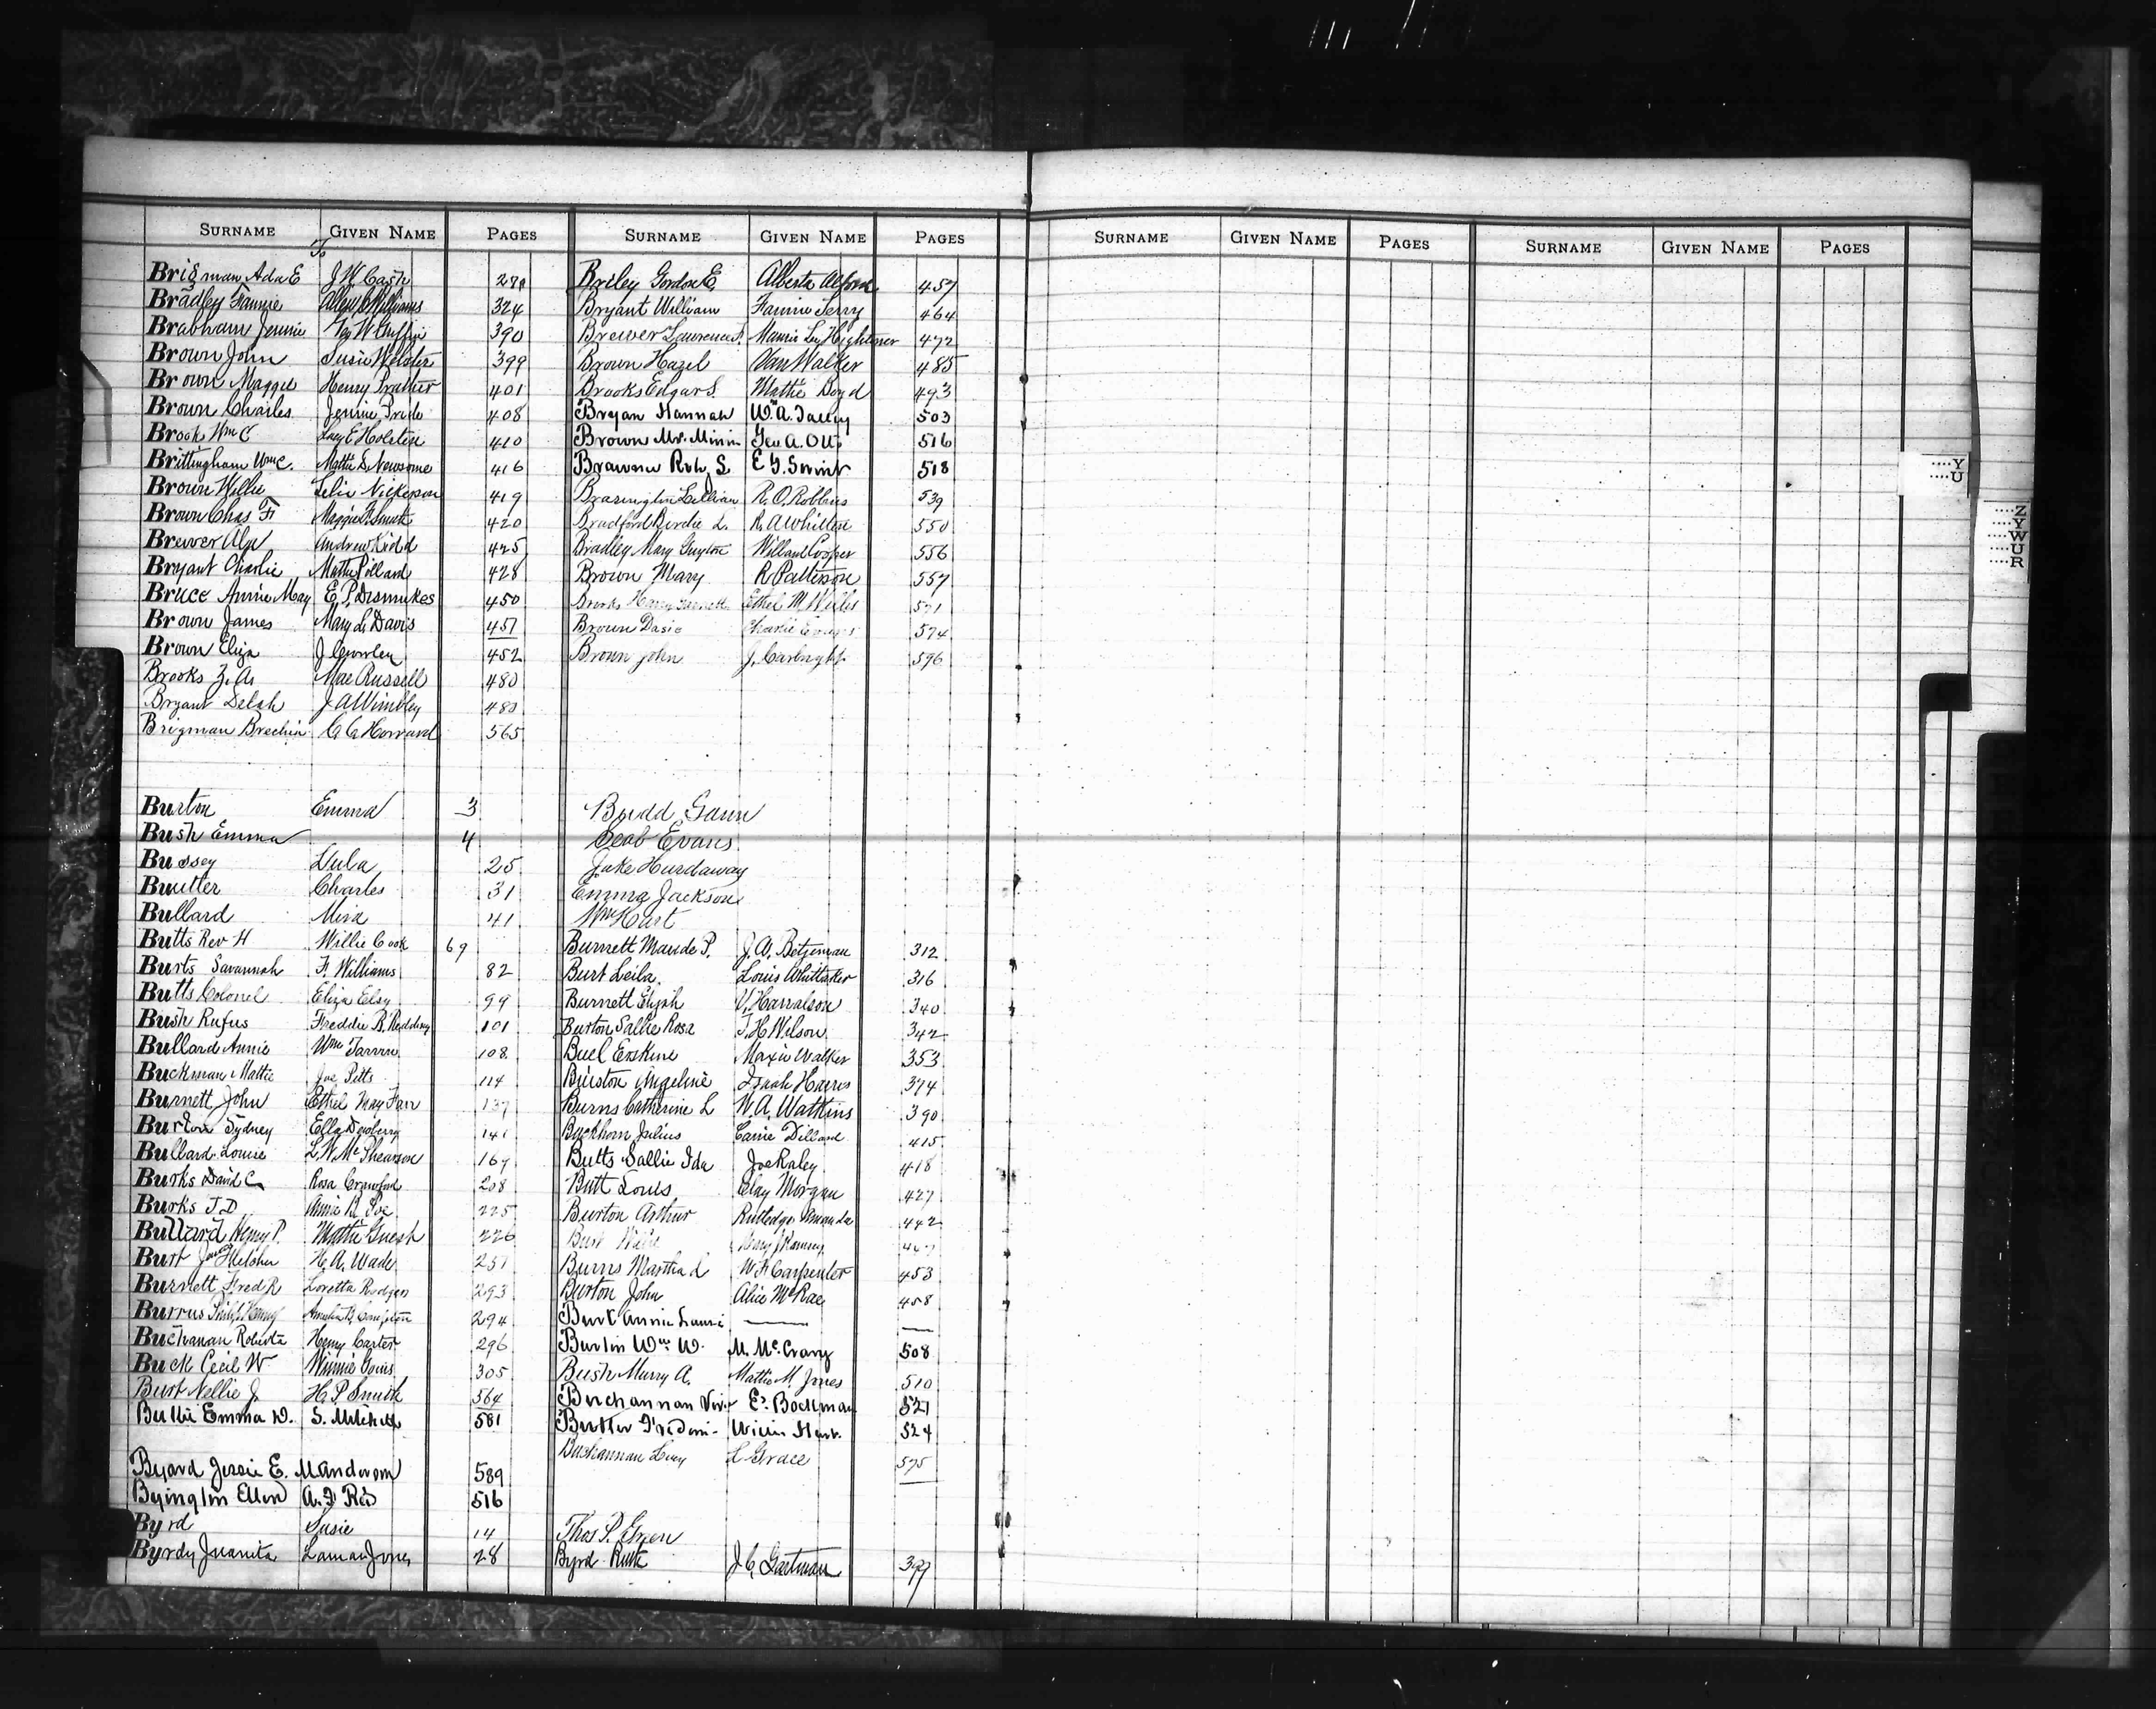 SURNAME GIVEN NAME PAGES SURNAME GIVEN NAME PAGES SURNAME GIVEN NAME PAGES SURNAME GIVEN NAME PAGES
To
Brigman Ada E J W Cash
Briley Gordon E. Alberta 457
Bradley Fannie Williams 324
Bryant William Fannie Terry 464
Brabham Jennie W Griffin 390
Brewer Lawrence Mamie Lee Hightower 472
Brown John Susie Webster 399
Brown Hazel Van Walker 485
Brown Maggie Henry Prather 401
Brooks Edgar S. Mattie Boyd 493
Brown Charles Jennie Pride 408
Bryan Hannah W. A. Talley 503
Brook Wm C Lucy E Holsten 410
Brown Mrs. Geo A. Ott 516
Brittingham Wm C. Mattie S. Newsome 416
E. G. 518
Brown Willie Nickerson 419
Lillian R. O. Robbins 539
Brown Chas F Maggie Smith 420
Bradford Birdie L. R. A Whitten 550
Brewer Andrew Kidd 425
Bradley Mary Guyton Willard Cooper 556
Bryant Charlie Mattie Pollard 428
Brown Mary R Patterson 557
Bruce Annie May E. P. Dismukes 450
Brooks Harry Ethel M 571
Brown James Mary L Davis 451
Brown Dasie Charlie 574
Brown Eliza J 452
Brown John J. Cartright 596
Brooks Z. A. Mae Russell 480
Bryant Delah J A Wimbley 480
Brigman C C Howard 565
Burton Emma 3 Budd Gann
Bush Emma 4 Seab Evans
Bussey Lula 25 Jake Hurdaway
Buutler Charles 31 Emma Jackson
Bullard Mira 41 Wm Hart
Butts Rev H Willie Cook 69
Burnett Maude P. J. A. Betjeman 312
Burts Savannah F. Williams 82
Burt Leila. Louis Whittaker 316
Butts Colonel Eliza Elsy 99
Burnett Elijah V. Harralson 340
Bush Rufus Freddie B. Redding 101
Burton Sallie Rosa T. H. Wilson 342
Bullard Annie Wm Tarvin 108
Buel Erskine Maxie Walker 353
Buckman Mattie Joe Pitts 114
Angeline Isaah Harris 374
Burnett John Ethel May Farr 137
Burns Catherine L W. A. Watkins 390
Burton Sydney Ella Dewberry 141
Buckhorn Julius Carrie Dillard 415
Bullard Louise L. N. McPhearson
Butts Sallie Ida Joe Raley 418
Burks David C Rosa Crawford 208
Butt Louis Clay Morgan 427
Burks J D Annie 225
Burton Arthur Rutledge Amanda 442
Bullard Henry P. Mattie 226
Burt Ramsey
Burt H. A. Wade 251
Burns Martha L W. F Carpenter 453
Burnett Fred R Loretta Rodgers 293
Burton John Alice McRae 458
Burrus 294
Burt Annie
Buchanan Roberta Henry Carter 296
Wm W. M. McCrary 508
Buck Cecil W Winnie 305
Bush Murry A. Mattie M. Jones 510
Burt Nellie J. H. P. Smith 564
Buchannan E. 521
Emma D. S. Mitchell 581
Butler Willie 524
L Grace 575
Byard Jessie E. 589
Byington Ellen A. F. 516
Byrd Susie 14 Thos P. Green
Byrdy Juanita Lamar Jones 28
Byrd Ruth J C, 399
Y
U
Z
Y
W
U
R